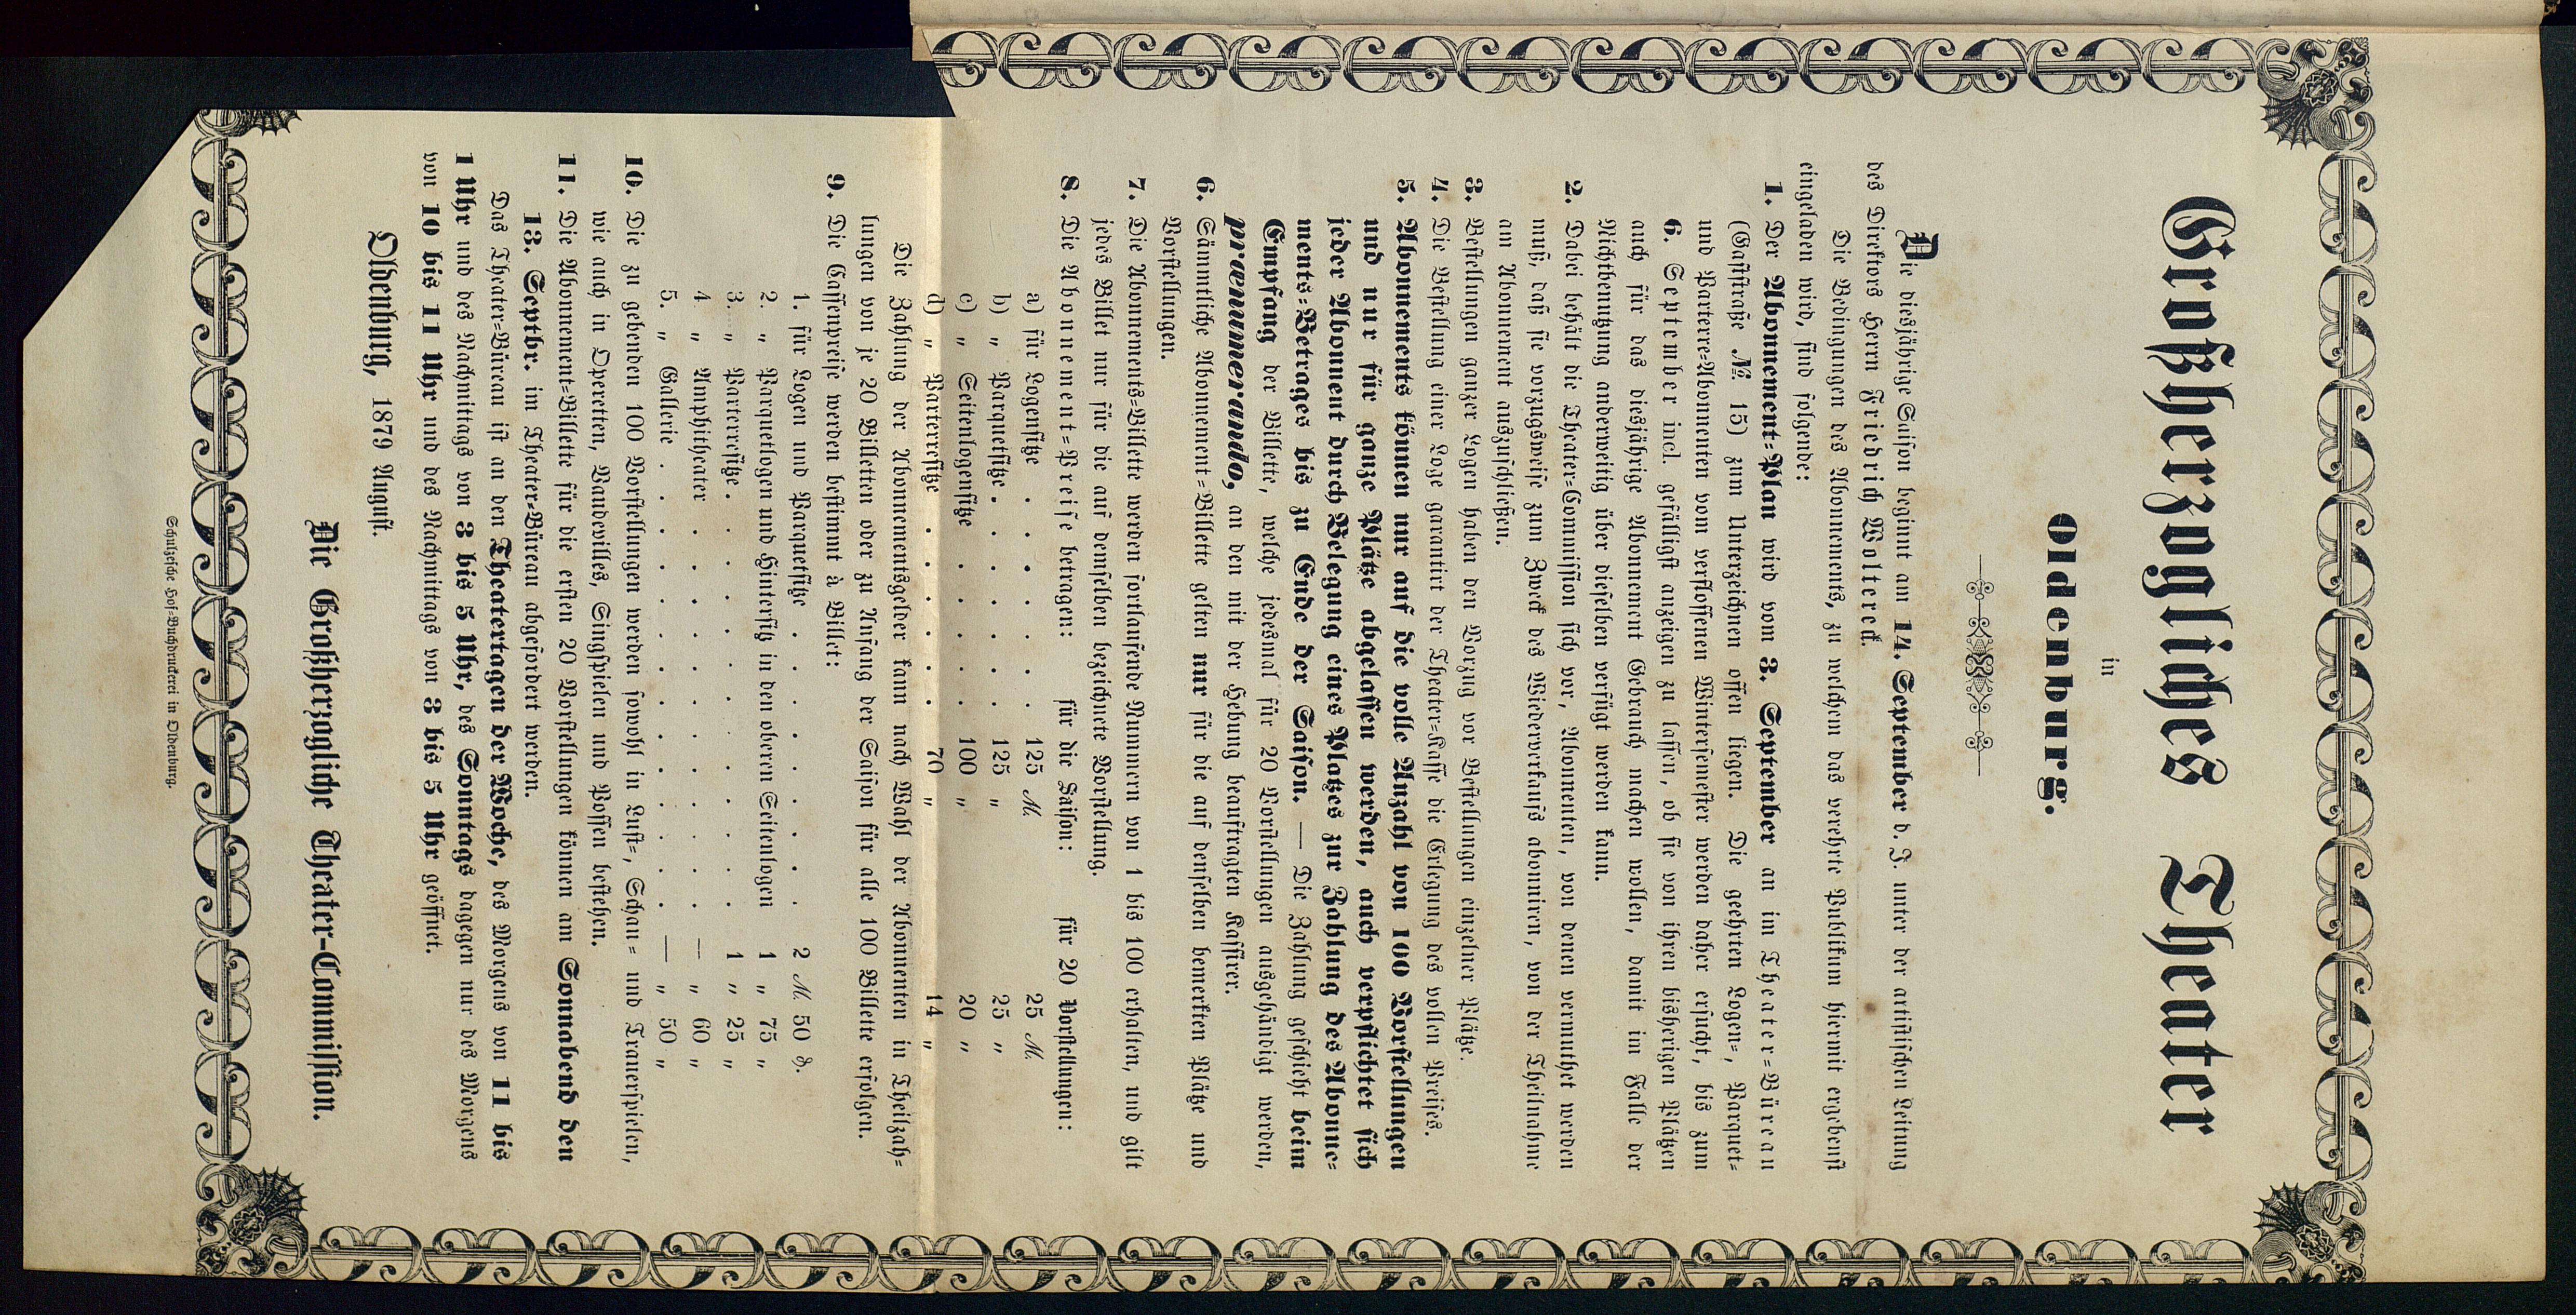 Großherzogliches Theater
in
Oldenburg.
Die diesjährige Saison beginnt am 14. September d. J. unter der artistischen Leitung
des Direktors Herrn Friedrich Woltereck.
Die Bedingungen des Abonnements, zu welchen das verehrte Publikum hiermit ergebenst
eingeladen wird, sind folgende:
1. Der Abonnement-Plan wird vom 3. September an im Theater-Büreau
(Gaststraße №. 15) zum Unterzeichnen offen liegen. Die geehrten Logen-, Parquet-
und Parterre-Abonnenten vom verflossenen Wintersemester werden daher ersucht, bis zum
6. September incl. gefälligst anzeigen zu lassen, ob sie von ihren bisherigen Plätzen
auch für das diesjährige Abonnement Gebrauch machen wollen, damit im Falle der
Nichtbenutzung anderweitig über dieselben verfügt werden kann.
2. Dabei behält die Theater-Commission sich vor, Abonnenten, von denen vermuthet werden
muß, daß sie vorzugsweise zum Zweck des Wiederverkaufs abonniren, von der Theilnahme
am Abonnement auszuschließen.
3. Bestellungen ganzer Logen haben den Vorzug vor Bestellungen einzelner Plätze.
4. Die Bestellung einer Loge garantirt der Theater-Kasse die Erlegung des vollen Preises.
5. Abonnements können nur auf die volle Anzahl von 100 Vorstellungen
und nur für ganze Plätze abgelassen werden, auch verpflichtet sich
jeder Abonnent durch Belegung eines Platzes zur Zahlung des Abonne-
ments-Betrages bis zu Ende der Saison. — Die Zahlung geschieht beim
Empfang der Billette, welche jedesmal für 20 Vorstellungen ausgehändigt werden,
prænumerando, an den mit der Hebung beauftragten Kassirer.
6. Sämmtliche Abonnement-Billette gelten nur für die auf denselben bemerkten Plätze und
Vorstellungen.
7. Die Abonnements-Billette werden fortlaufende Nummern von 1 bis 100 erhalten, und gilt
jedes Billet nur für die auf demselben bezeichnete Vorstellung.
8. Die Abonnement-Preise betragen: für die Saison: für 20 Vorstellungen:
a) für Logensitze . . . . . 125 M. 25 M.
b) „ Parquetsitze . . . . . 125 „ 25 „
c) „ Seitenlogensitze . . . . 100 „ 20 „
d) „ Parterresitze . . . . . 70 „ 14 „
Die Zahlung der Abonnementsgelder kann nach Wahl der Abonnenten in Theilzah-
lungen von je 20 Billetten oder zu Anfang der Saison für alle 100 Billette erfolgen.
9. Die Cassenpreise werden bestimmt à Billet:
1. für Logen und Parquetsitze . . . . . . . 2 M. 50 ₰.
2. „ Parquetlogen und Hintersitz in den oberen Seitenlogen 1 „ 75 „
3. „ Parterresitze . . . . . . . . . 1 „ 25 „
4. „ Amphitheater . . . . . . . . — „ 60 „
5. „ Gallerie . . . . . . . . . . — „ 50 „
10. Die zu gebenden 100 Vorstellungen werden sowohl in Lust-, Schau- und Trauerspielen,
wie auch in Operetten, Vaudevilles, Singspielen und Possen bestehen.
11. Die Abonnement-Billette für die ersten 20 Vorstellungen können am Sonnabend den
13. Septbr. im Theater-Büreau abgefordert werden.
Das Theater-Büreau ist an den Theatertagen der Woche, des Morgens von 11 bis
1 Uhr und des Nachmittags von 3 bis 5 Uhr, des Sonntags dagegen nur des Morgens
von 10 bis 11 Uhr und des Nachmittags von 3 bis 5 Uhr geöffnet.
Oldenburg, 1879 August.
Die Großherzogliche Theater-Commission.
Schulzesche Hof-Buchdruckerei in Oldenburg.